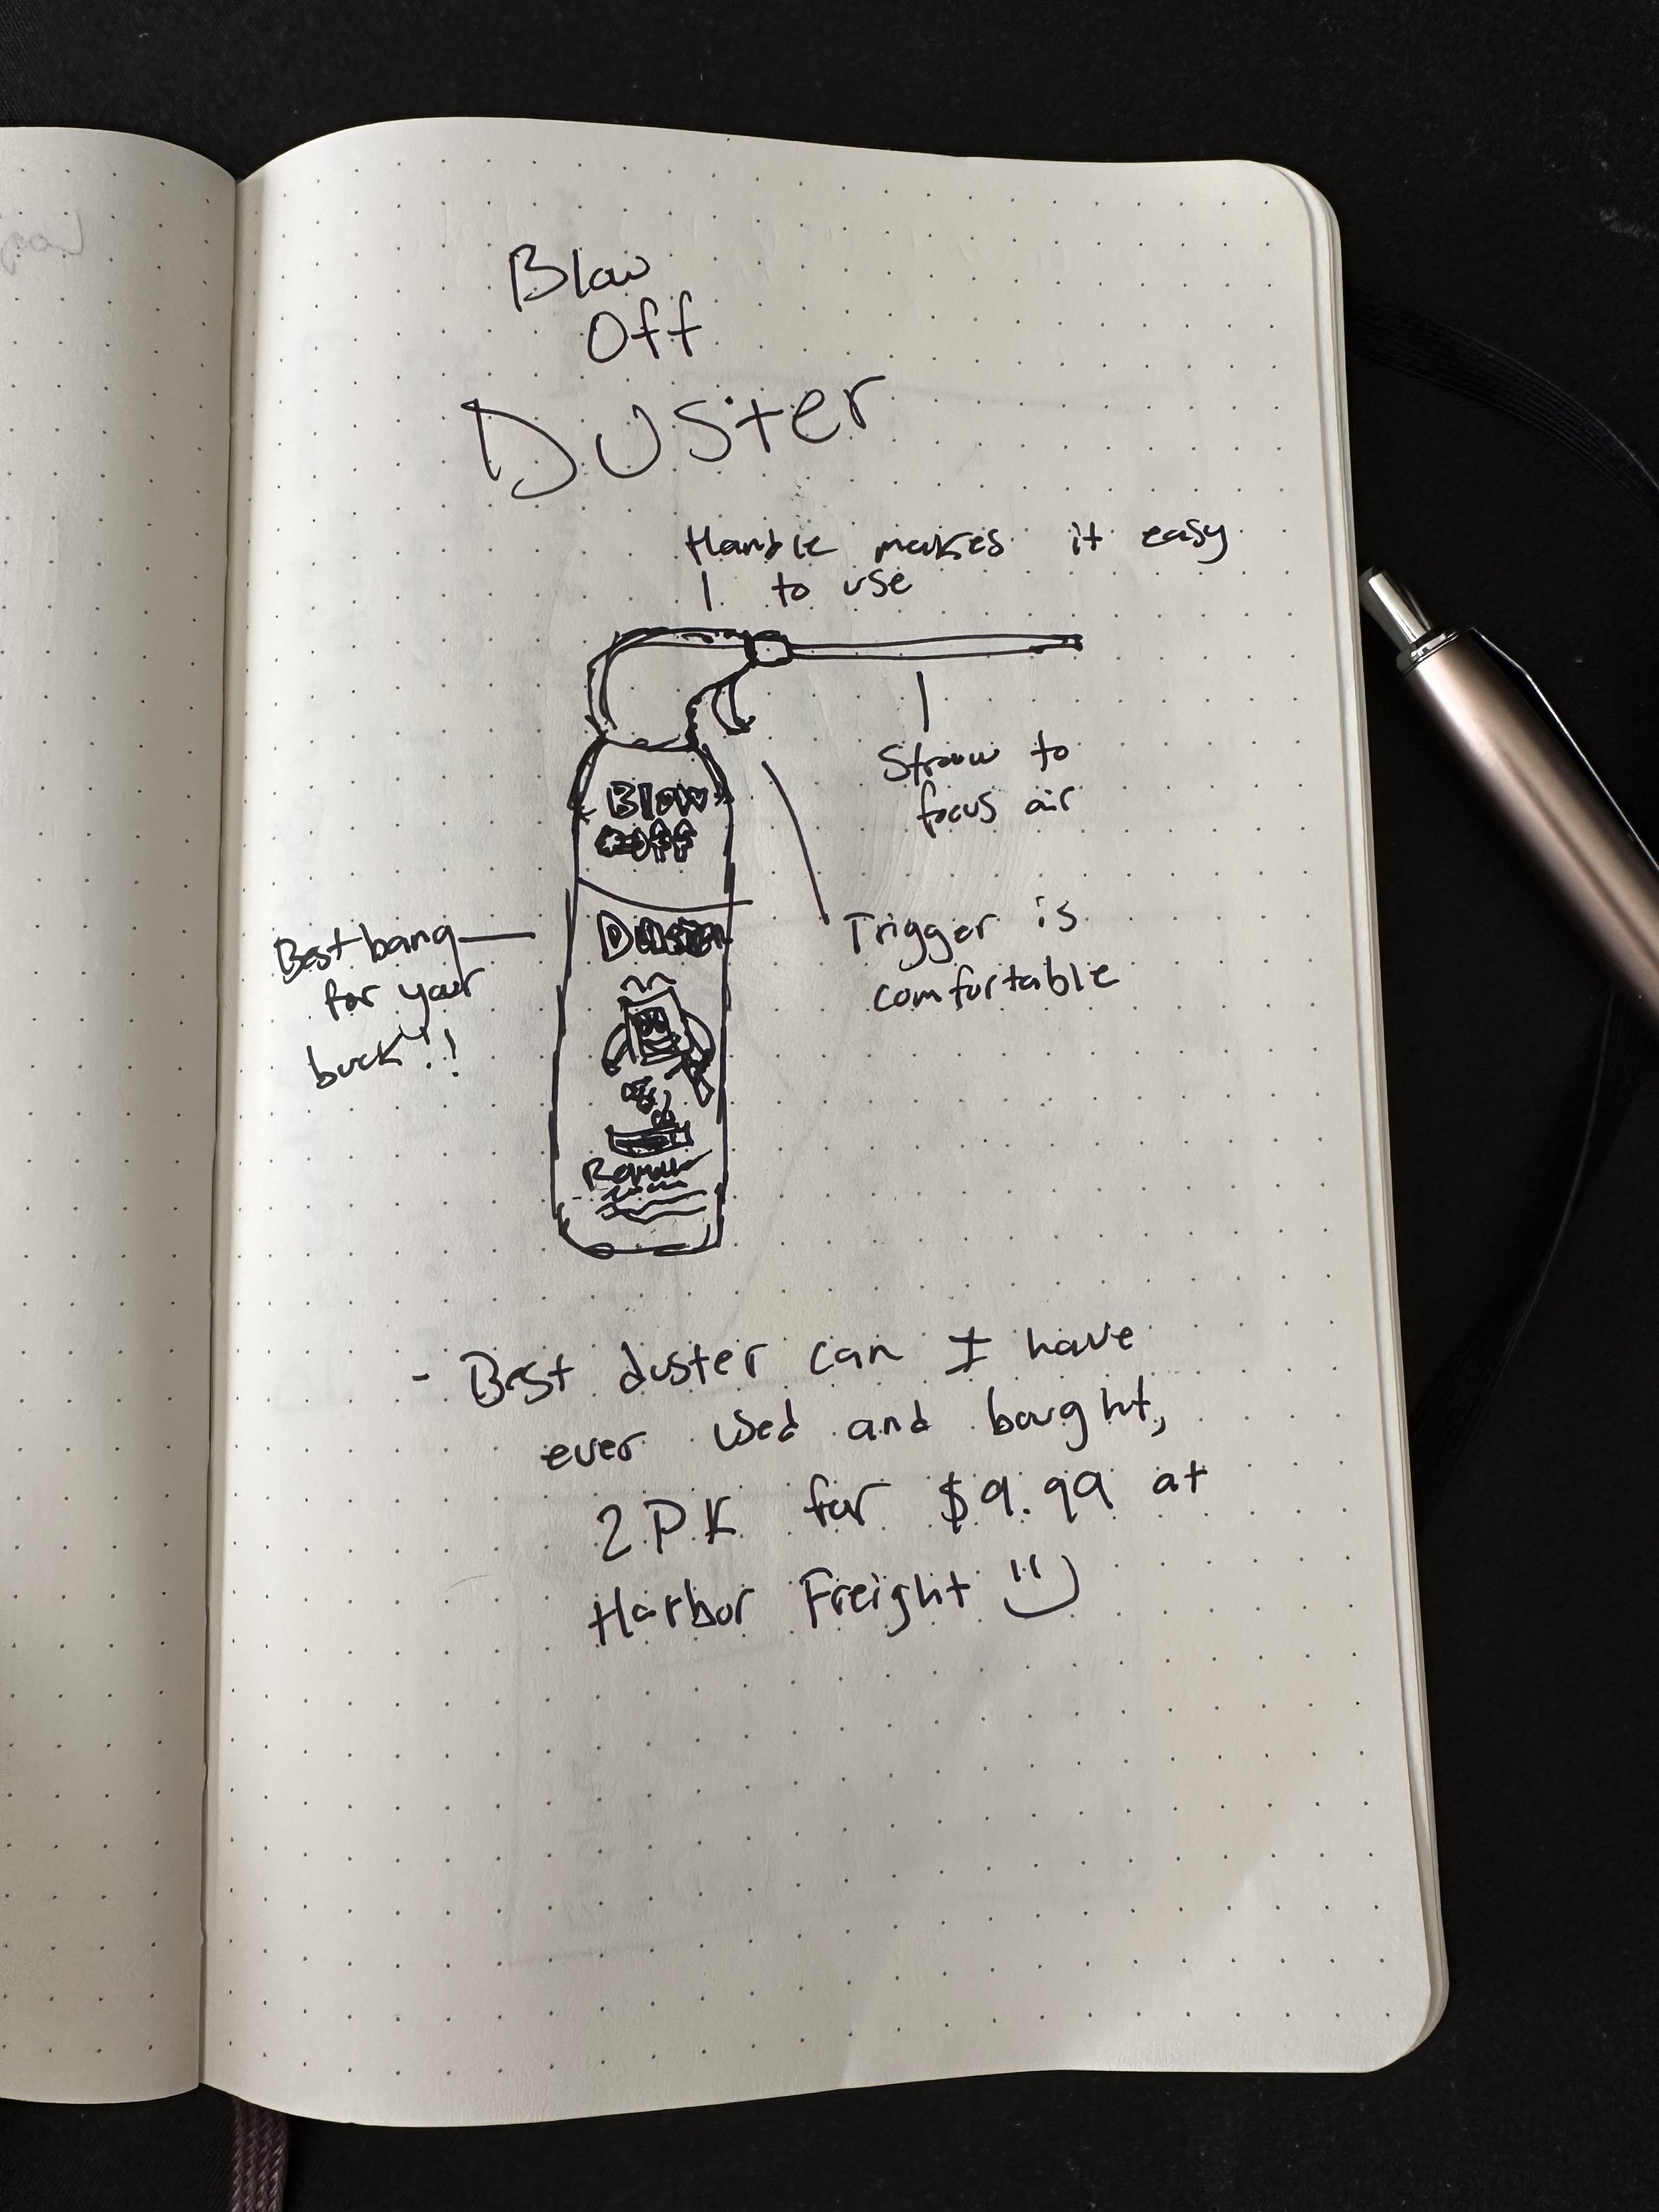 Blow
Off
Duster
Handle makes it easy
to use
Straw to
focus air
Blow
Off
Trigger is
comfortable
Duster
Best bang
for your
buck!!
- Best duster can I have
ever used and bought,
2 PK for $9.99 at
Harbor Freight